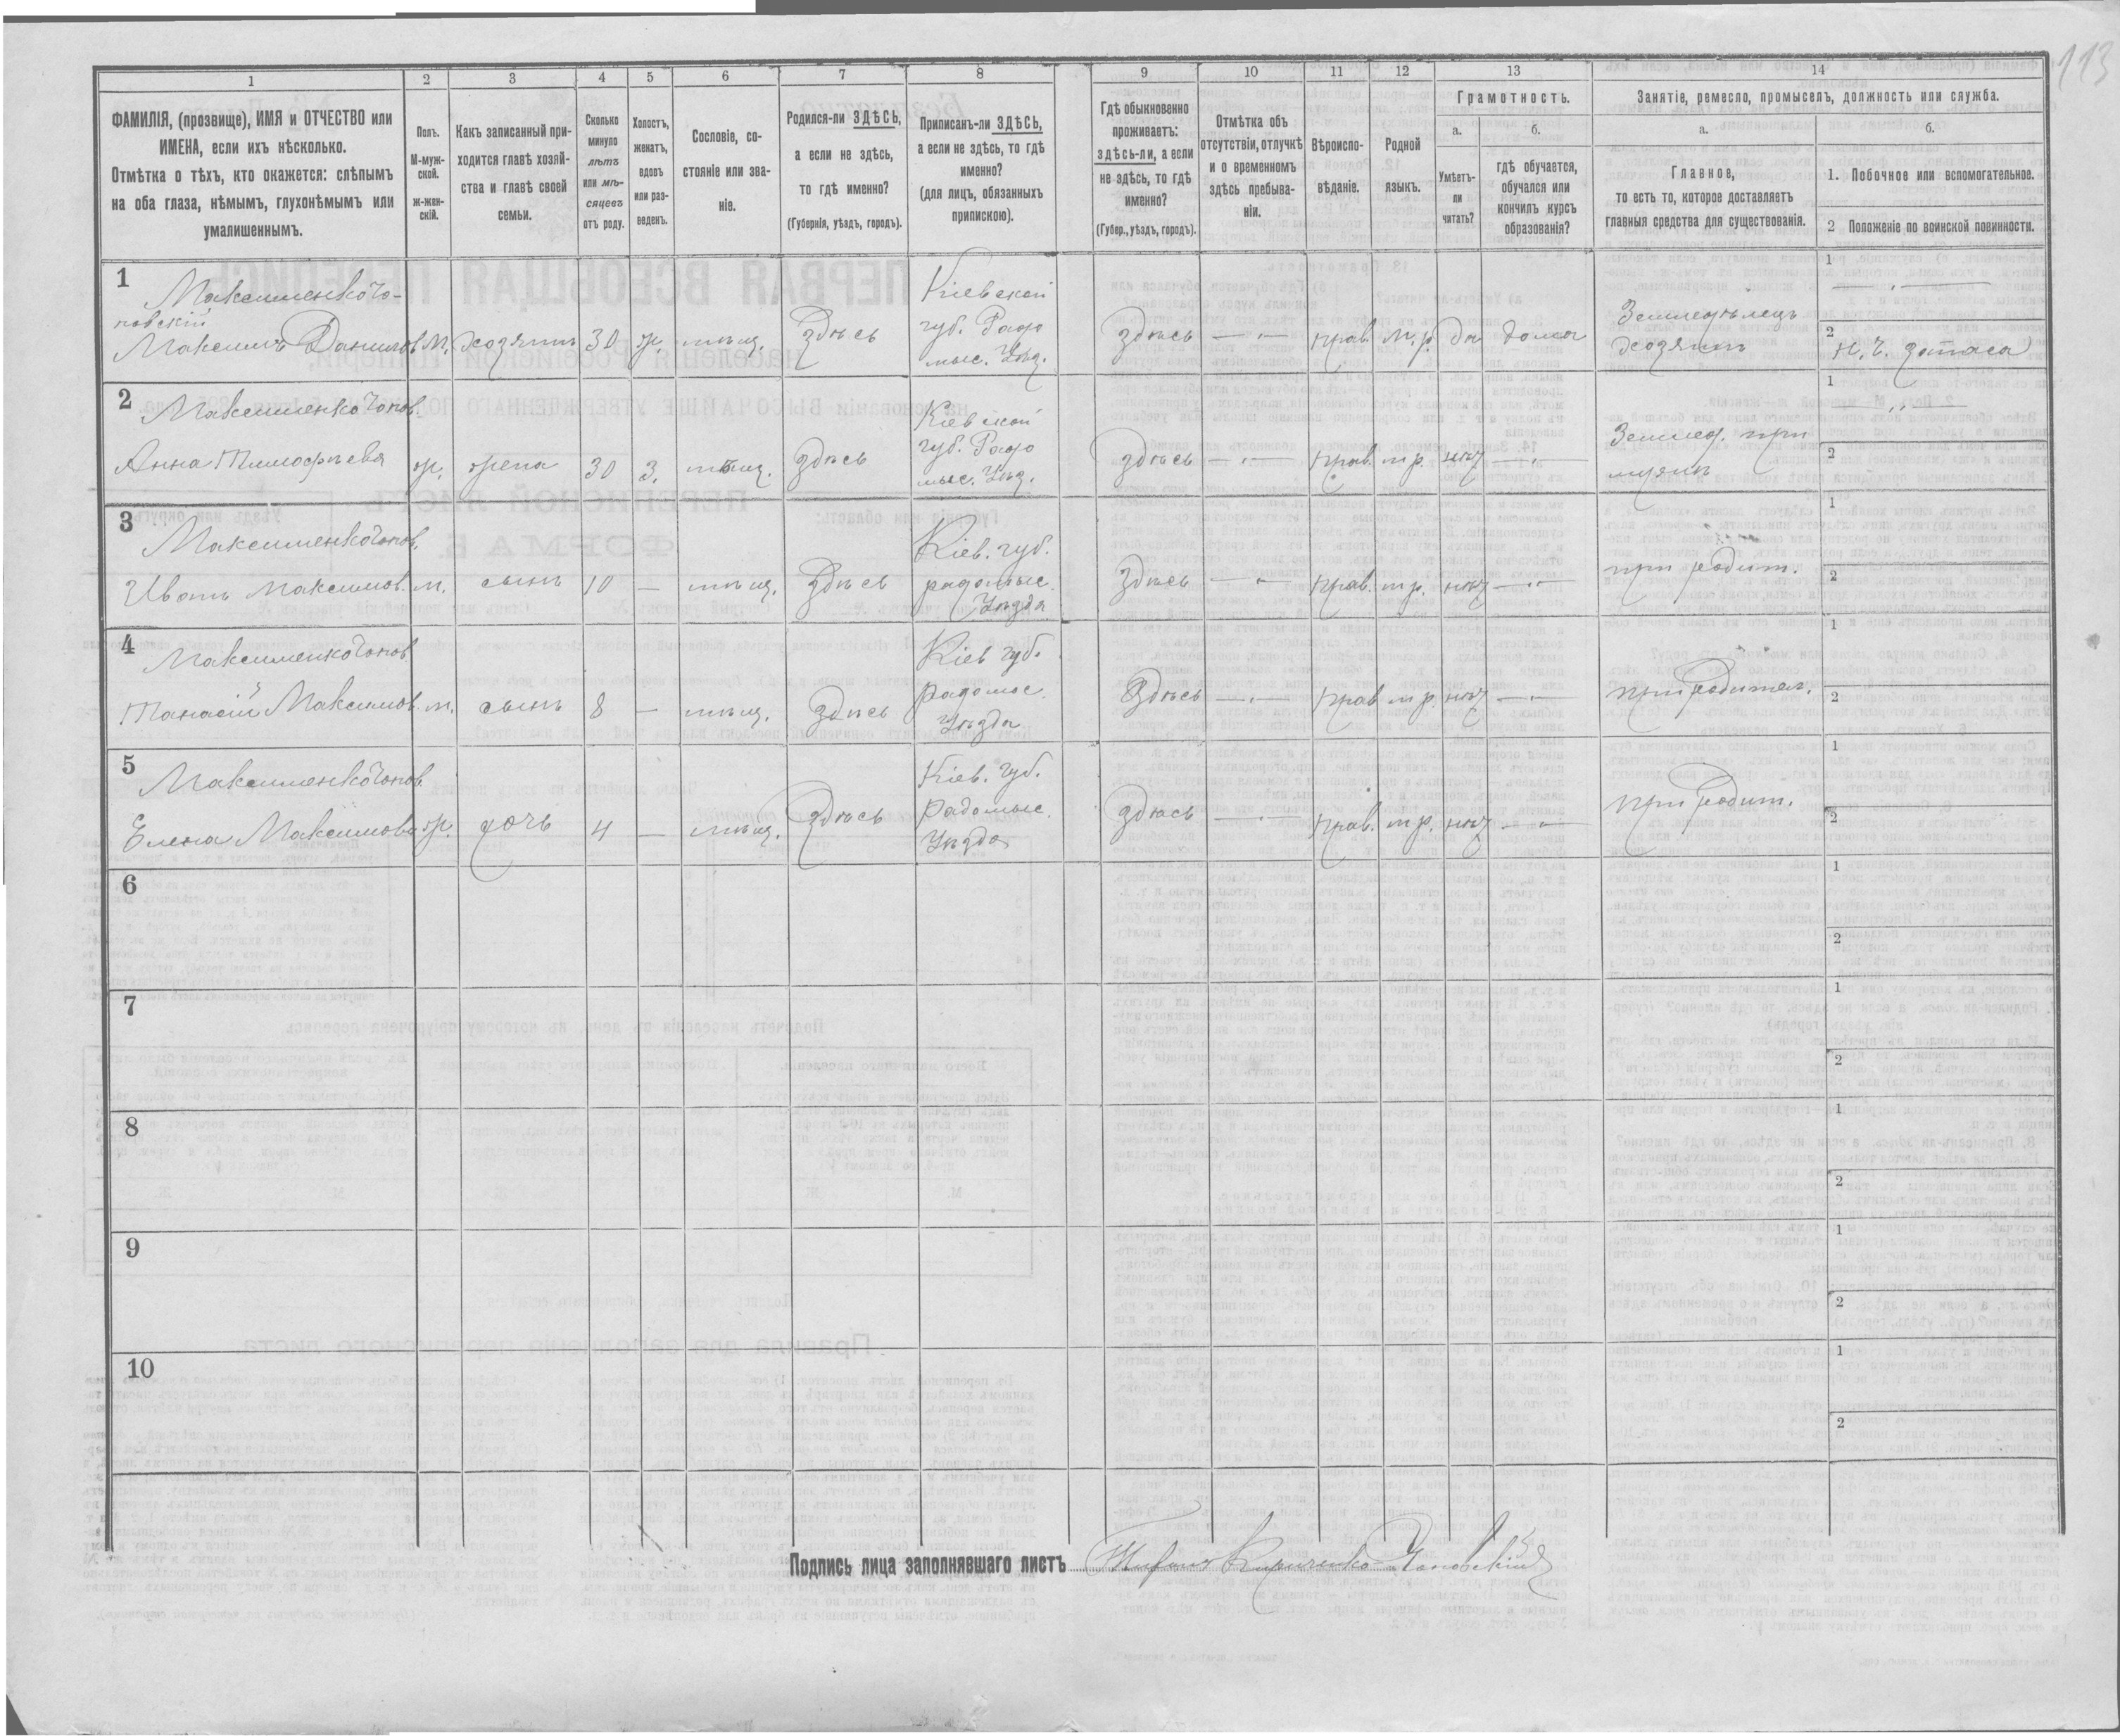 113
1 2 3 4 5 6 7 8 9 10 11 12 13 14
ФАМИЛІЯ, (прозвище), ИМЯ и ОТЧЕСТВО или
ИМЕНА, если ихъ нѣсколько.
Отмѣтка о тѣхъ, кто окажется: слѣпымъ
на оба глаза, нѣмымъ, глухонѣмымъ или
умалишеннымъ.
Полъ.
М-муж-
ской.
ж-жен-
скій.
Какъ записанный при-
ходится главѣ хозяй-
ства и главѣ своей
семьи.
Сколько
минуло
лѣтъ
или мѣ-
сяцевъ
отъ роду.
Холостъ,
женатъ,
вдовъ
или раз-
веденъ.
Сословіе, со-
стояніе или зва-
ніе.
Родился-ли ЗДѢСЬ,
а если не здѣсь,
то гдѣ именно?
(Губернія, уѣздъ, городъ).
Приписанъ-ли ЗДѢСЬ,
а если не здѣсь, то гдѣ
именно?
(для лицъ, обязанныхъ
припискою).
Гдѣ обыкновенно
проживаетъ:
здѣсь-ли, а если
не здѣсь, то гдѣ
именно?
(Губер., уѣздъ, городъ).
Отмѣтка объ
отсутствіи, отлучкѣ
и о временномъ
здѣсь пребыва-
ніи.
Вѣроиспо-
вѣданіе.
Родной
языкъ.
Грамотность.
а.
Умѣетъ-
ли
читать?
б.
гдѣ обучается,
обучался или
кончилъ курсъ
образованія?
Занятіе, ремесло, промыселъ, должность или служба.
а.
Главное,
то есть то, которое доставляетъ
главныя средства для существованія.
б.
1. Побочное или вспомогательное.
2 Положеніе по воинской повинности.
1
Максименко Чо-
повскій
Максимъ Данилов М. Хозяинъ 30 ж. мѣщ. Здѣсь
Кіевской
губ. Радо
мыс. Уѣз.
Здѣсь — Прав. м.р. да дома
Земледѣлецъ
хозяинъ
1
2
Н. Ч. запаса
2
Максименко Чопов.
Анна Тимофѣева ж. жена 30 З. мѣщ. здѣсь
Кіевской
губ. Радо
мыс. Уѣз.
здѣсь — Прав. м р. нѣт —
Землед. при
мужѣ
1
2
3
Максименко Чопов.
Иванъ Максимов. м. сынъ 10 — мѣщ. Здѣсь
Кіев. губ.
радомыс.
Уѣзда
Здѣсь — Прав. м р. нѣт —
при родит.
1
2
4
Максименко Чопов
Танасій Максимов м. сынъ 8 — мѣщ. Здѣсь
Кіев губ.
радомыс.
Уѣзда
Здѣсь — Прав м р. нѣт —
при родител.
1
2
5
Максименко Чопов
Елена Максимова ж. дочь 4 — мѣщ. Здѣсь
Кіев. губ.
радомыс.
Уѣзда
здѣсь — Прав. м р. нѣт —
при родит.
1
2
6
1
2
7
1
2
8
1
2
9
1
2
10
1
2
Подпись лица заполнявшаго листъ Кириченко Чоповскій